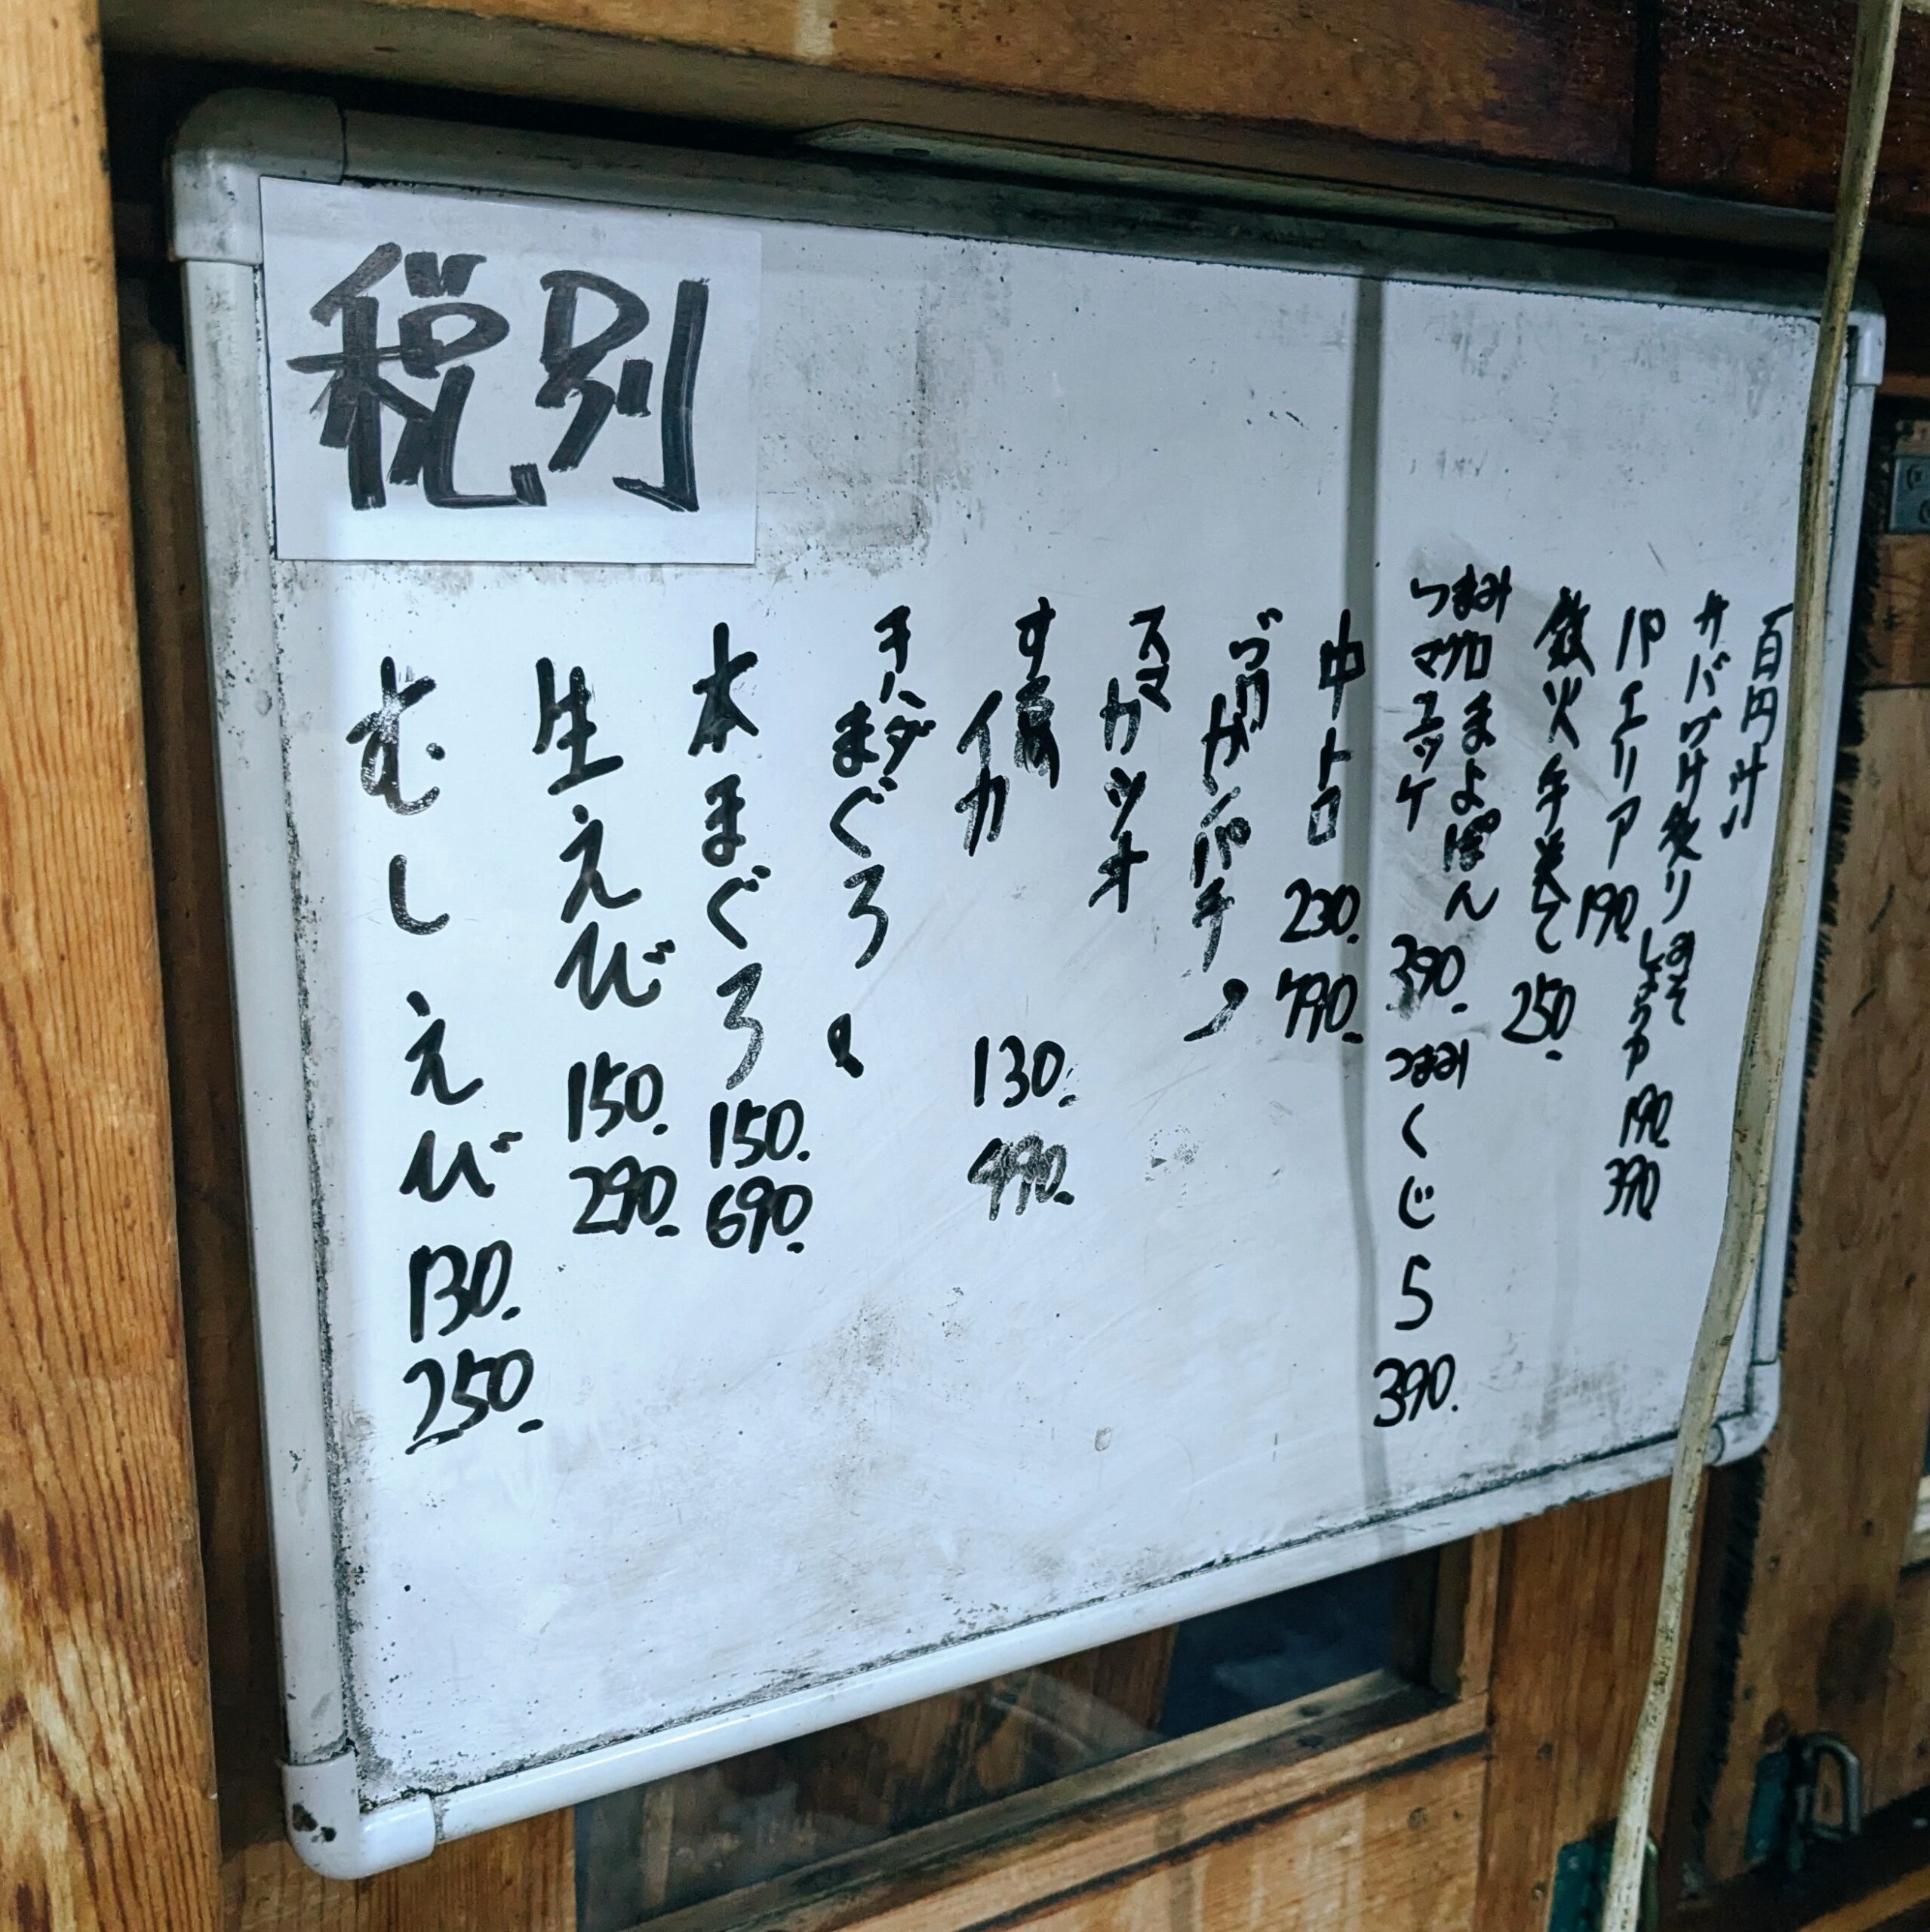 税別
百円汁
サバづけ炙り のせ しょうが 190. 390
パエリア 190
鉄火手巻て 250.
つまみ マグロ ユッケ
まよぽん 390.
つまみ くじら 390.
中トロ 230. 790.
づけ カンパチ
スマ カツオ
イカ 130. 490.
キハダ まぐろ
本まぐろ 150. 690.
生えび 150. 290.
むしえび 130. 250.